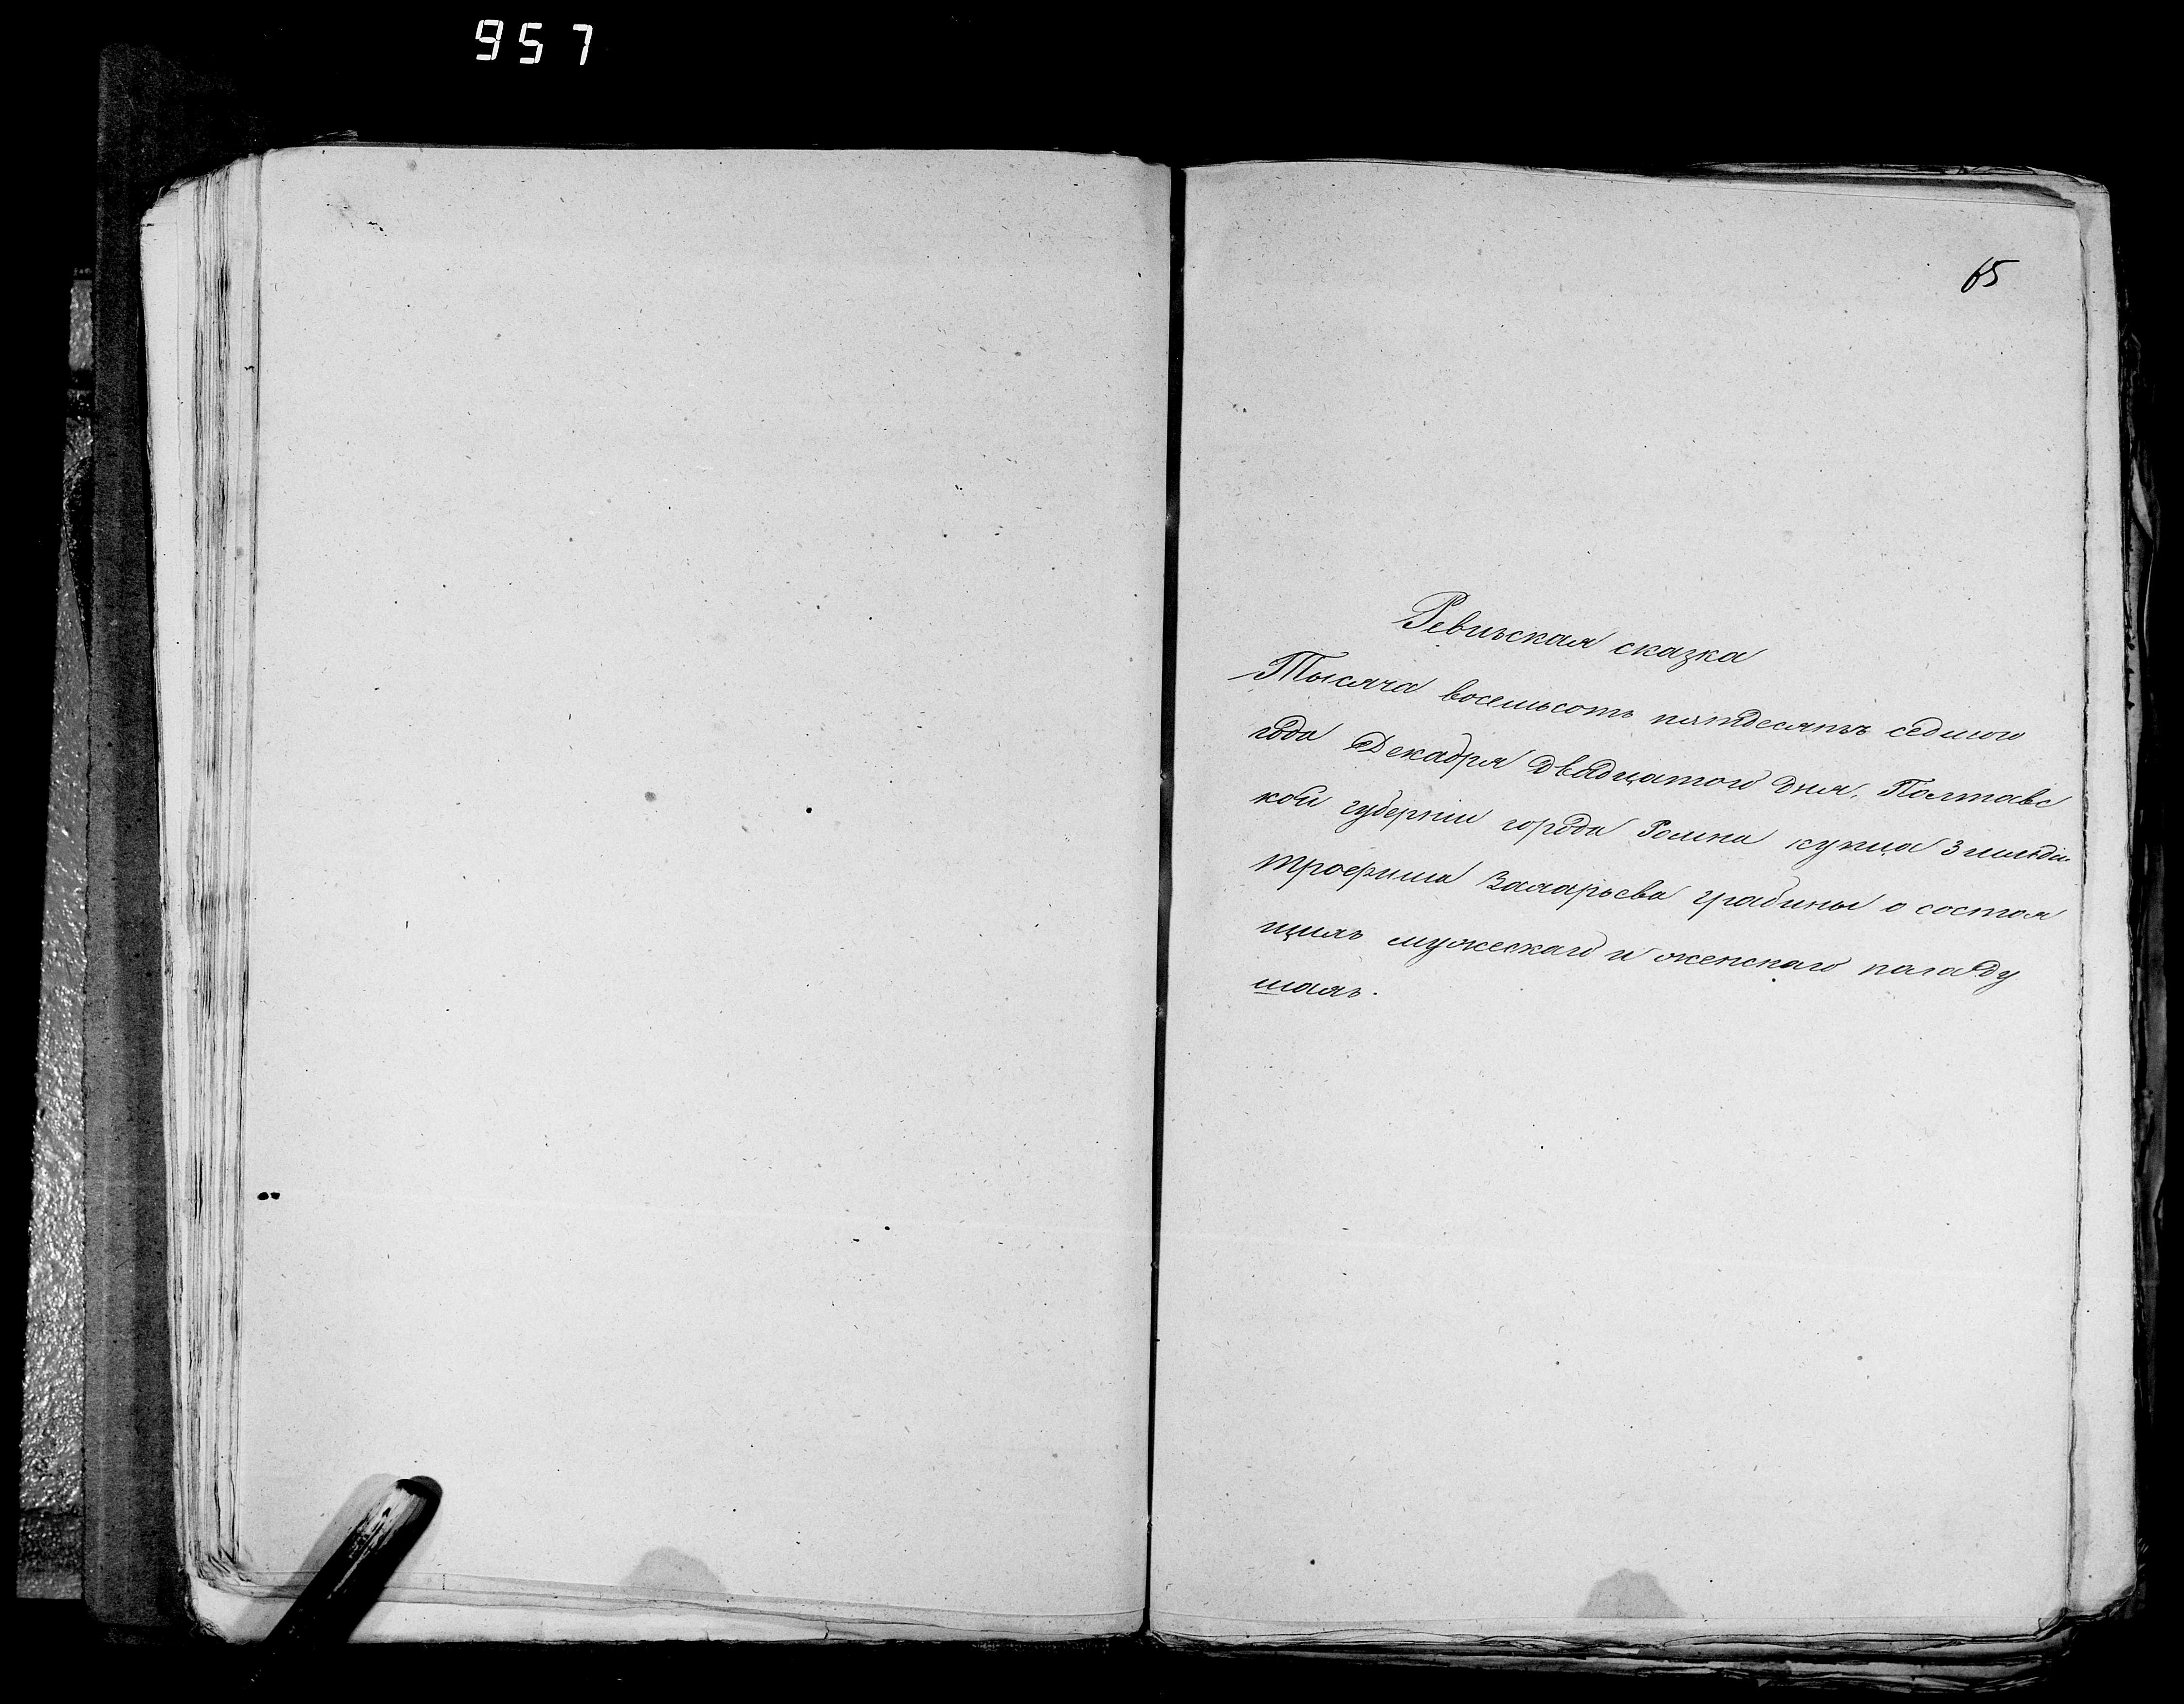 957
65
Ревизская сказка
Тысяча восемьсотъ пятдесятъ седмого
года Декабря двадцатого дня, Полтавс
кой губернiи города Ромна купца 3 гильдiи
Трофима Захарьева грабины о состоя
щихъ мужескаго и женскаго пола ду
шахъ.